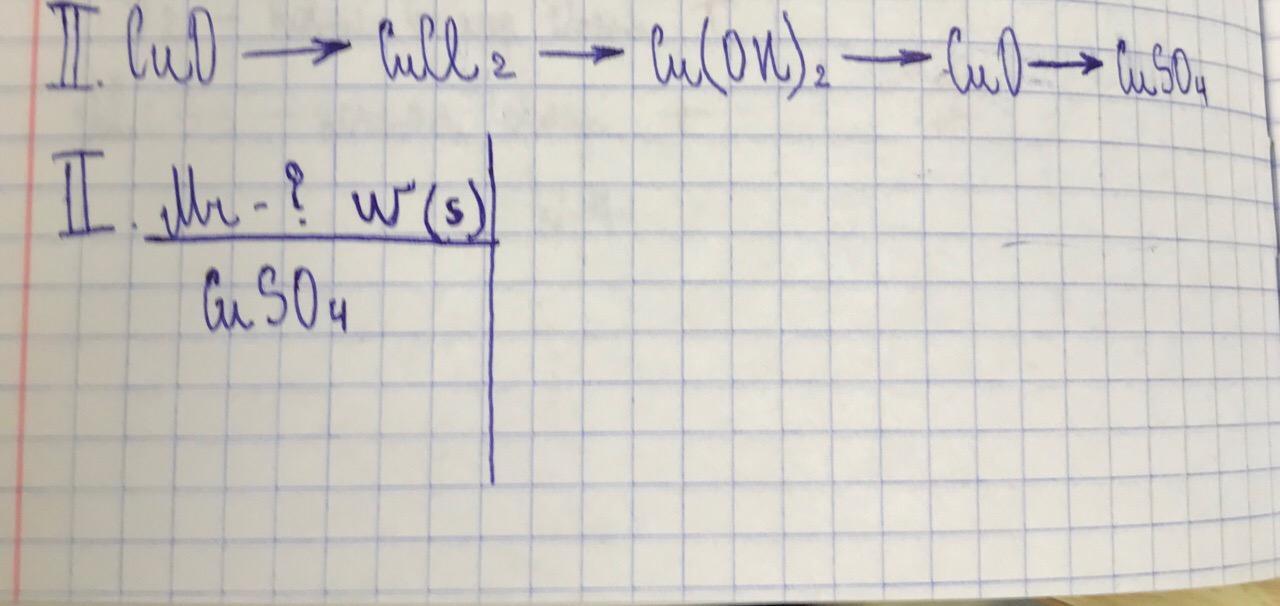 II. CuO → CuCl₂ → Cu(OH)₂ → CuO → CuSO₄
II. Mr - ? w(s)
CuSO₄